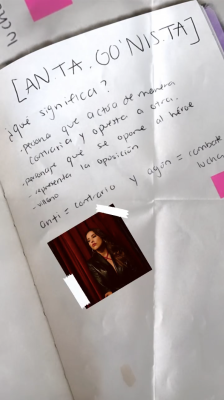 [AN.TA.GO'NIS.TA]
¿qué significa?
- persona que actúa de manera
contraria y opuesta a otra.
- personaje que se opone al héroe
- representa la oposición
- villano
anti = contrario y agon = combate
lucha